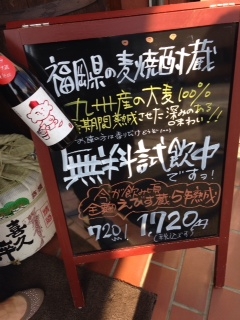 福岡県の麦焼酎蔵
九州産の大麦100%
長期間熟成させた深みのある
味わい!!
無料試飲中
ですョ!
今が飲み頃
全麹えびす蔵らち熟成
720ml 1,720円
喜久